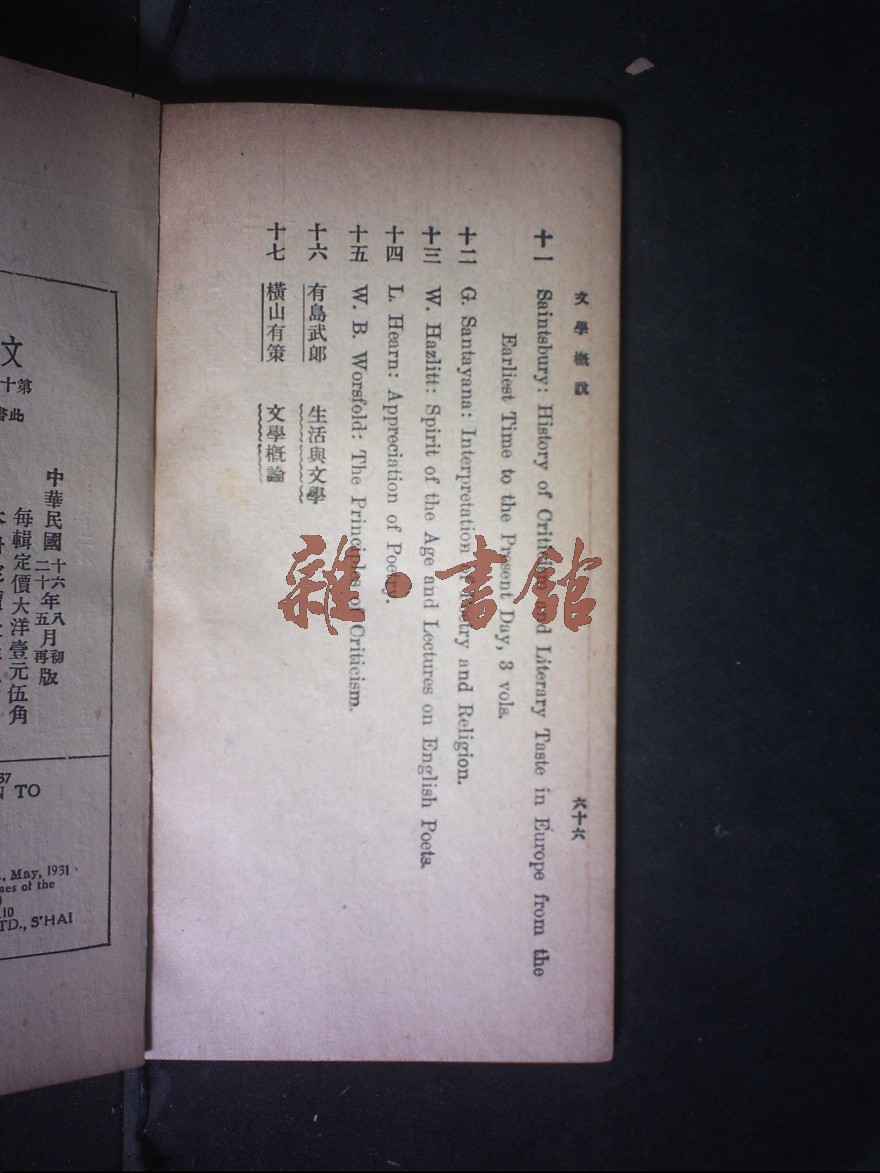 文學概說
六十六
十一 Saintsbury: History of Criticism and Literary Taste in Europe from the
Earliest Time to the Present Day, 3 vols.
十二 G. Santayana: Interpretation of Poetry and Religion.
十三 W. Hazlitt: Spirit of the Age and Lectures on English Poets.
十四 L. Hearn: Appreciation of Poetry.
十五 W. B. Worsfold: The Principles of Criticism.
十六 有島武郎 生活與文學
十七 橫山有策 文學概論
雜·書館
文
第十
此書
中華民國十六年八月初版
二十年五月再版
每輯定價大洋壹元伍角
37
N TO
., May, 1931
mes of the
10
TD., S'HAI